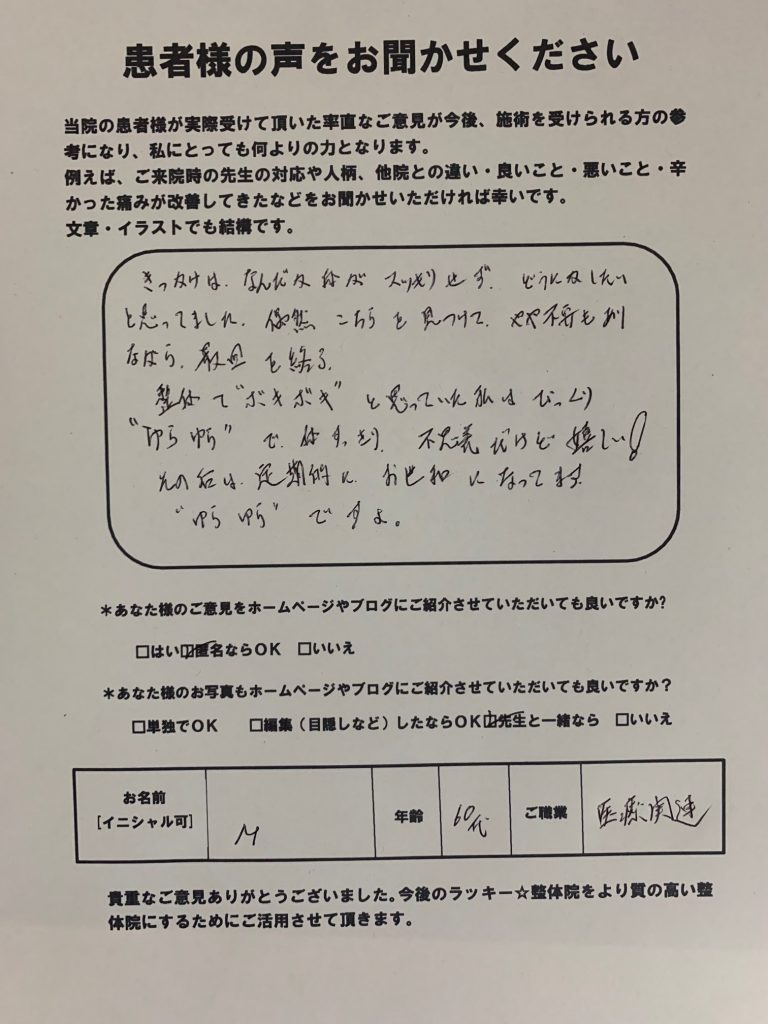 患者様の声をお聞かせください
当院の患者様が実際受けて頂いた率直なご意見が今後、施術を受けられる方の参
考になり、私にとっても何よりの力となります。
例えば、ご来院時の先生の対応や人柄、他院との違い・良いこと・悪いこと・辛
かった痛みが改善してきたなどをお聞かせいただければ幸いです。
文章・イラストでも結構です。
きっかけは、なんだか体がスッキリせず、どうにかしたい
と思ってました。偶然こちらを見つけて、やや不安もあり
ながら、数回を終る。
整体で"ボキボキ"と思っていた私はびっくり
"ゆらゆら"で、体すっきり、不思議だけど嬉しい!
その后は、定期的に、お世和になってます
"ゆらゆら"ですよ。
＊あなた様のご意見をホームページやブログにご紹介させていただいても良いですか?
□はい☑匿名ならOK □いいえ
＊あなた様のお写真もホームページやブログにご紹介させていただいても良いですか？
□単独でOK □編集（目隠しなど）したならOK☑先生と一緒なら □いいえ
お名前
[イニシャル可] M 年齢 60代 ご職業 医療関連
貴重なご意見ありがとうございました。今後のラッキー☆整体院をより質の高い整
体院にするためにご活用させて頂きます。